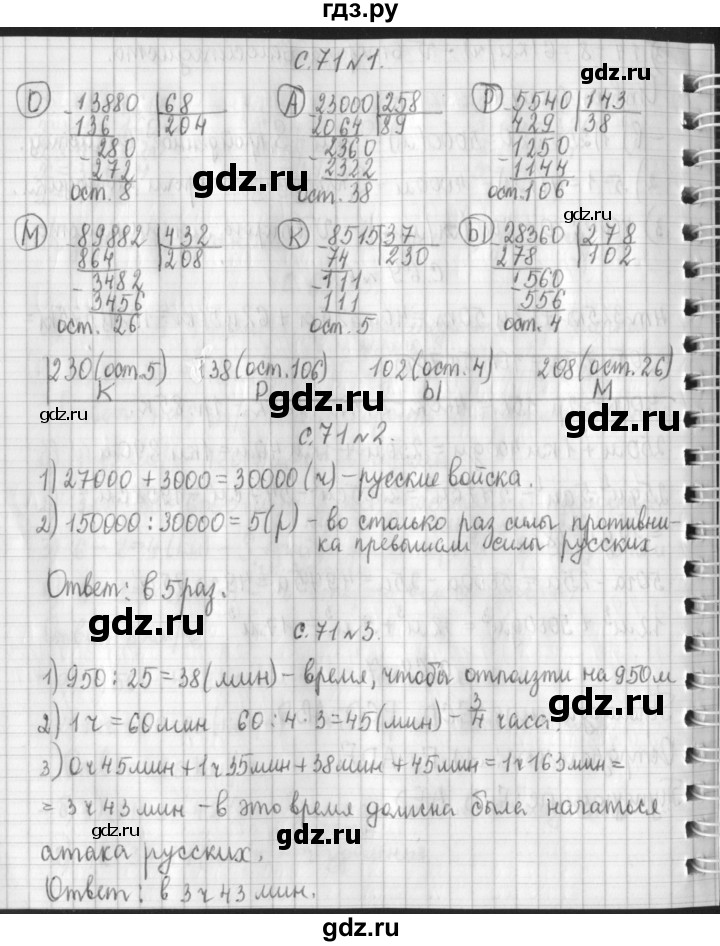 гдз.ру
с.71 №1.
О 13880 |68 А 23000 |258 Р 5540 |143
136 204 2064 89 429 38
- 280 - 2360 - 1250
272 2322 1144
ост. 8 ост. 38 ост. 106
gdz.ru
gdz.ru
М 89882 |432 К 8515 |37 Ы 28360 |278
864 208 74 230 278 102
- 3482 - 111 - 1560
3456 111 556
ост. 26 ост. 5 ост. 4
gdz.ru
230 (ост.5) 38 (ост.106) 102 (ост. 4) 208 (ост. 26)
К Р Ы М
gdz.ru
gdz.ru
с.71 №2.
1) 27000 + 3000 = 30000 (ч) – русские войска.
2) 150000 : 30000 = 5 (р) – во столько раз силы противни-
ка превышали силы русских
Ответ: в 5 раз.
gdz.ru
gdz.ru
с.71 №3.
1) 950 : 25 = 38 (мин) – время, чтобы отползти на 950 м
gdz.ru
2) 1 ч = 60 мин 60 : 4 · 3 = 45 (мин) – 3/4 часа.
3) 0 ч 45 мин + 1 ч 35 мин + 38 мин + 45 мин = 1 ч 163 мин =
= 3 ч 43 мин – в это время должна была начаться
gdz.ru
gdz.ru
атака русских.
Ответ: в 3 ч 43 мин.
gdz.ru
gdz.ru